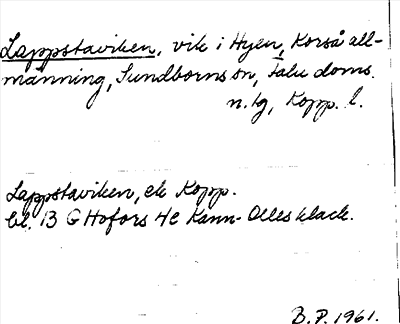 Lappstaviken, vik i Hyen, Korså all-
männing, Sundborns sn, Falu doms.
n. tg, Kopp. l.
Lappstaviken, ek Kopp.
bl. 13 G Hofors 4e Kann-Olles klack.
B.P. 1961.